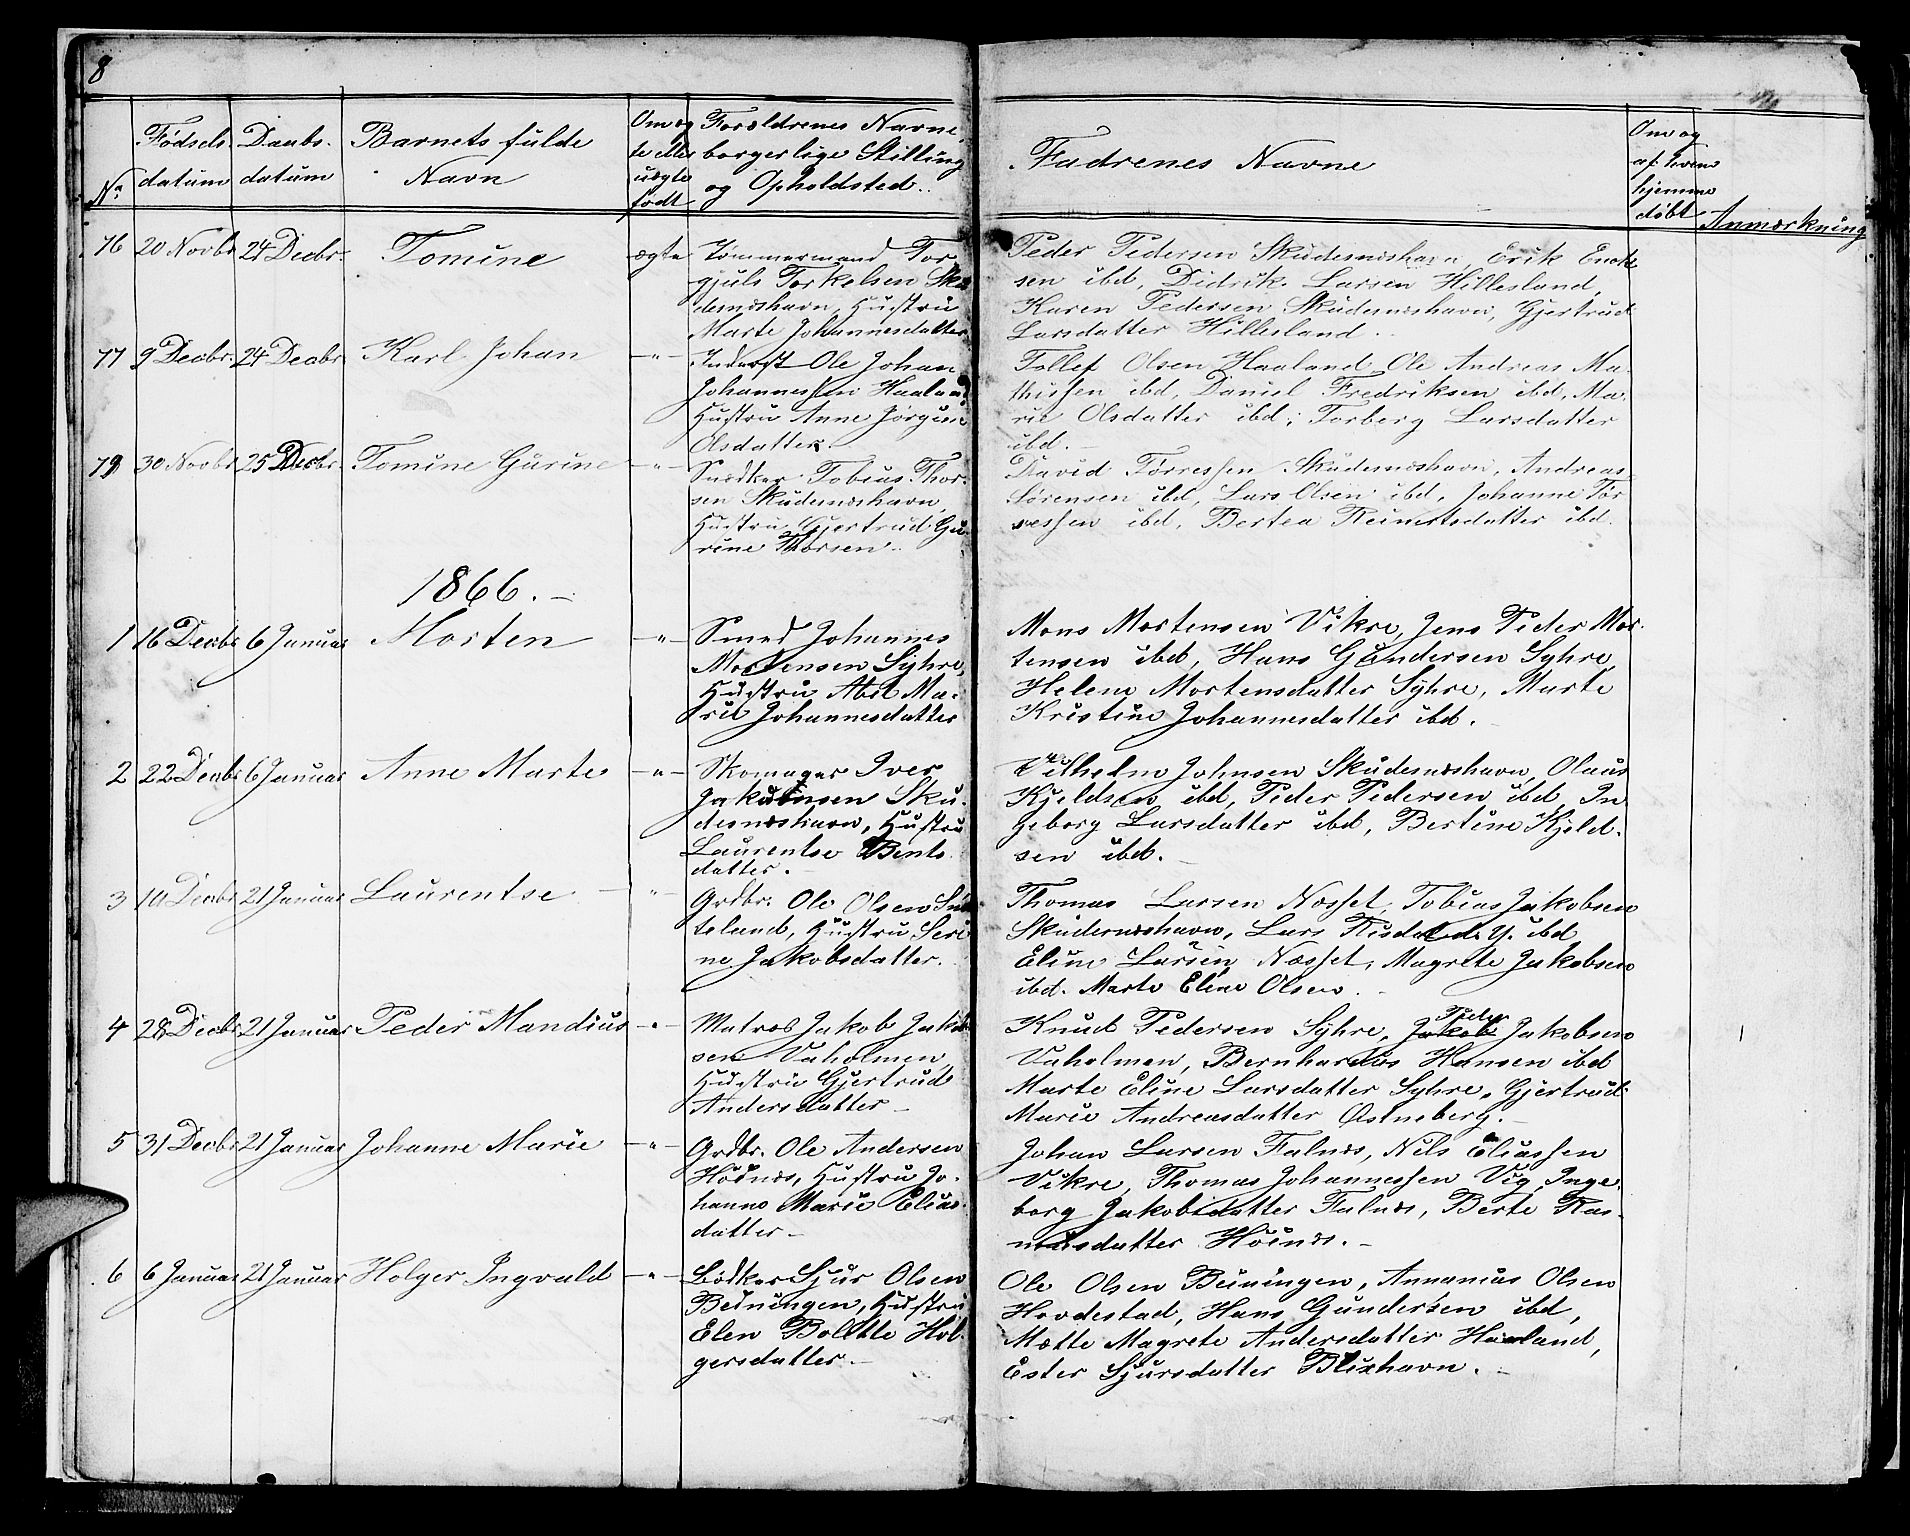 8
No
Fødsels
datum
Daabs
datum
Barnets fulde
Navn
Om æg
te eller
uægte
født
Forældrenes Navne,
borgerlige Stilling
og Opholdsted.
Fadrenes Navne
Om og
af hvem
hjemme
døbt
Anmærkning
76 20 Novbr 24 Decbr. Tomine ægte
Tømmermand Tor
gjuls Torkelsen Sku
desneshavn, Hustru
Marte Johannesdatter
Peder Pedersen Skudesneshavn, Erik Erick
sen ibd, Didrik Larsen Hillesland,
Karen Pedersen Skudesneshavn, Gjertrud
Larsdatter Hillesland.
77 9 Decbr. 24 Decbr. Karl Johan -"-
Inderst Ole Johan
Johannessen Haaland
Hustru Anne Jørgine
Olsdatter.
Tollef Olsen Haaland, Ole Andreas Ma-
thissen ibd, Daniel Fredriksen ibd, Ma-
rie Olsdatter ibd, Torberg Larsdatter
ibd.-
79 30 Novbr 25 Decbr. Tomine Gurine -"-
Snedker Tobias Thor-
sen Skudesneshavn,
Hustru Gjertrud Gu-
rine Thorsen.
David Tørressen Skudesneshavn, Andreas
Sørensen ibd, Lars Olsen ibd, Johanne Tør
ressen ibd, Bertea Reinertsdatter ibd.
1866.-
1 16 Decbr 6 Januar Morten -"-
Smed Johannes
Mortensen Syhre,
Hustru Abel Ma-
rie Johannesdatter
Mons Mortensen Vikre, Jens Peder Mor-
tensen ibd, Hans Gundersen Syhre,
Helene Mortensdatter Syhre, Marte
Kristine Johannesdatter ibd.-
2 22 Decbr 6 Januar Anne Marte -"-
Skomager Iver
Jakobsen Sku-
desneshavn, Hustru
Laurentse Bents
datter.-
Vilhelm Johnsen Skudesneshavn, Olaus
Kjeldsen ibd, Peder Pedersen ibd, In
geborg Larsdatter ibd, Bertine Kjeld-
sen ibd.-
3 10 Decbr 21 Januar Laurentse -"-
Grdbr. Ole Olsen
teland, Hustru Seri
ne Jakobsdatter.
Thomas Larsen Næsset, Tobias Jakobsen
Skudesneshavn, Lars Risdal ibd
Eline Larsen Næsset, Magrete Jakobsen
ibd. Marte Eline Olsen.-
4 28 Decbr 21 Januar Peder Mandius -"-
Matros Jakob Jakob
sen Vaholmen,
Hustru Gjertrud
Andersdatter-
Peder
Knud Pedersen Syhre, Jakob Jakobsen
Vaholmen, Bernhardus Hansen ibd
Marte Eline Larsdatter Syhre, Gjertrud
Marie Andreasdatter Østneberg.-
5 31 Decbr 21 Januar Johanne Marie -"-
Grdbr. Ole Andersen
Høines, Hustru Jo-
hanne Marie Elias-
datter-
Johan Larsen Falnes, Nils Eliassen
Vikre, Thomas Johannessen Vig, Inge-
borg Jakobsdatter Falnes, Berte Ras-
musdatter Høines.-
6 6 Januar 21 Januar Holger Ingvald -"-
Bødker Sjur Olsen
Beiningen, Hustru
Elen Bolette Hol-
gersdatter.-
Ole Olsen Beiningen, Annanias Olsen
Hovdestad, Hans Gundersen ibd,
Mætte Magrete Andersdatter Haaland,
Ester Sjursdatter Blixhavn.-